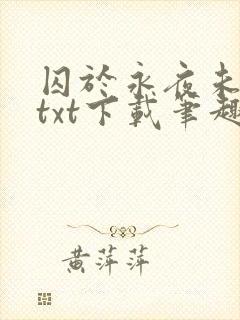 囚於永夜未
txt下載筆趣
黃萍萍